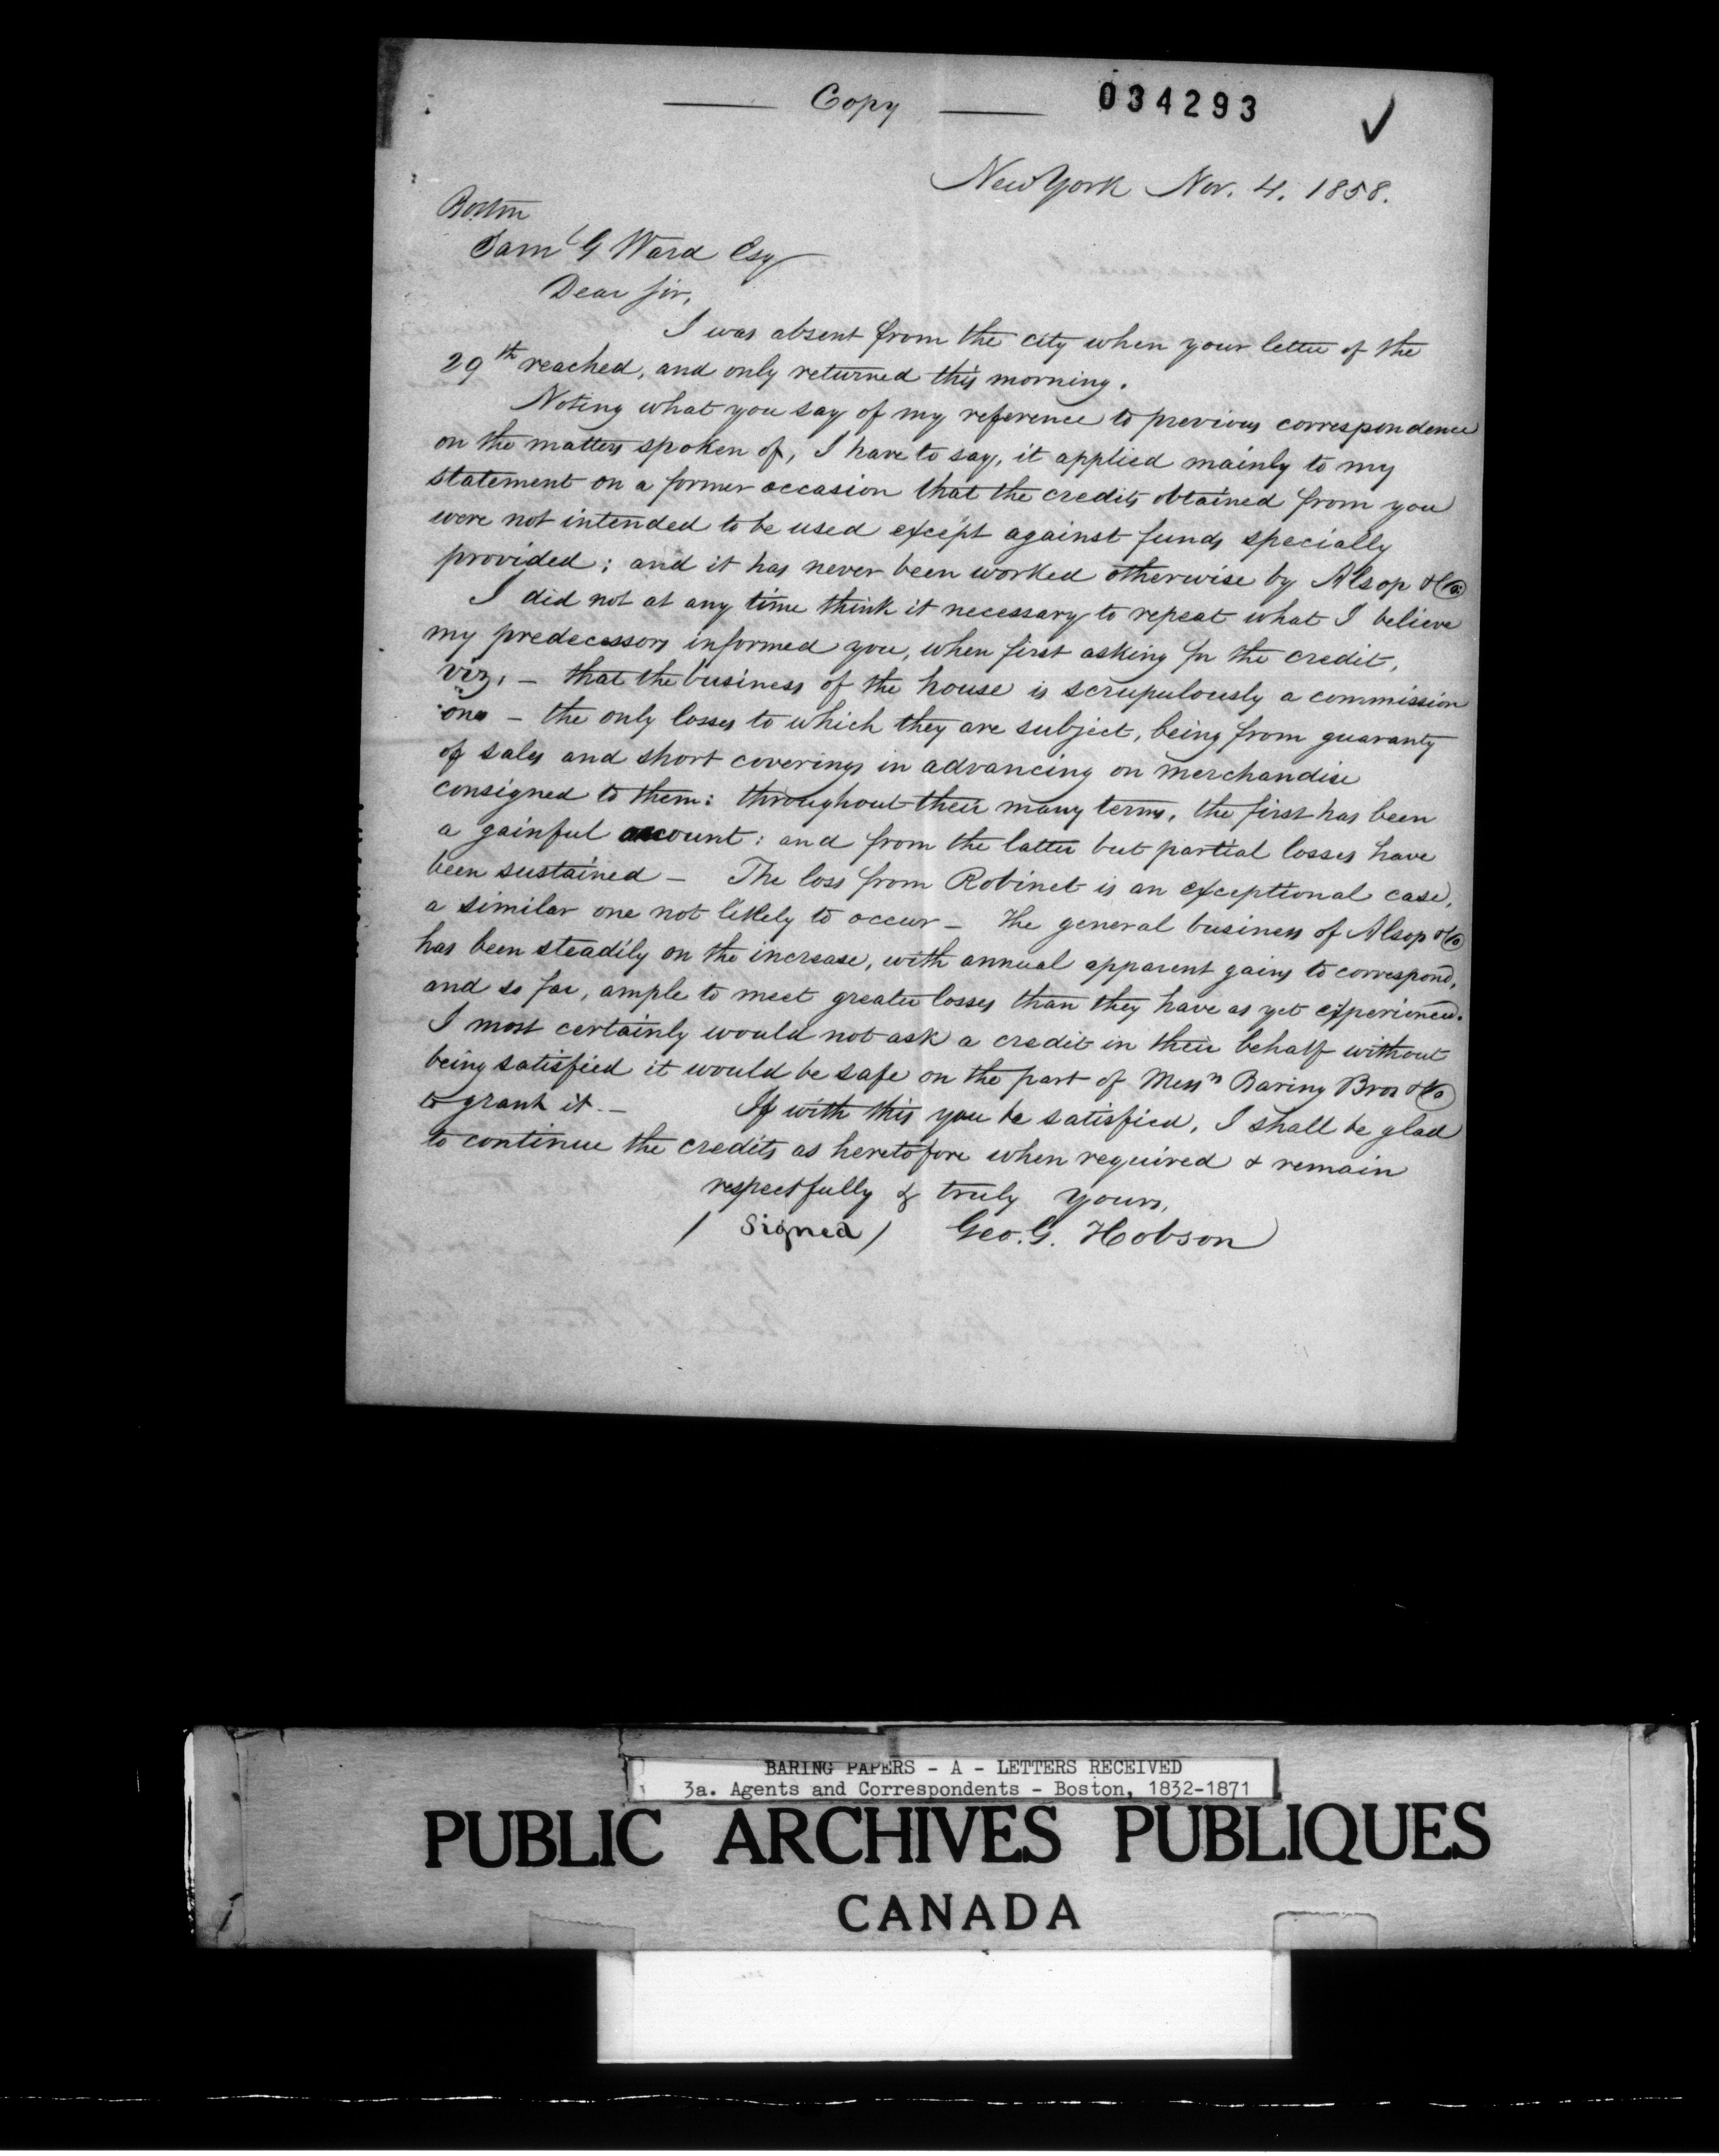 Copy
034293
New York Nov. 4. 1858.
Boston
Saml G Ward Esq
Dear Sir,
I was absent from the city when your letter of the
29th reached, and only returned this morning.
Noting what you say of my reference to previous correspondence
on the matters spoken of, I have to say, it applied mainly to my
statement on a former occasion that the credits obtained from you
were not intended to be used except against funds specially
provided; and it has never been worked otherwise by Alsop & Co.
I did not at any time think it necessary to repeat what I believe
my predecessors informed you, when first asking for the credit,
viz, – that the business of the house is scrupulously a commission
one – the only losses to which they are subject, being from guaranty
of sales and short coverings in advancing on merchandise
consigned to them: throughout their many terms, the first has been
a gainful account: and from the latter but partial losses have
been sustained – The loss from Robinet is an exceptional case,
a similar one not likely to occur – The general business of Alsop & Co
has been steadily on the increase, with annual apparent gains to correspond,
and so far, ample to meet greater losses than they have as yet experienced.
I most certainly would not ask a credit in their behalf without
being satisfied it would be safe on the part of Messrs Baring Bros & Co
to grant it. – If with this you be satisfied, I shall be glad
to continue the credits as heretofore when required & remain
respectfully & truly yours,
/ Signed / Geo. G. Hobson
BARING PAPERS - A - LETTERS RECEIVED
3a. Agents and Correspondents - Boston, 1832-1871
PUBLIC ARCHIVES PUBLIQUES
CANADA